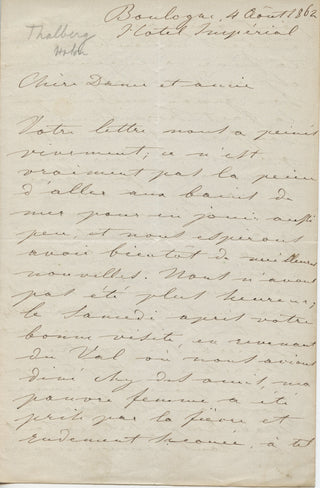 Boulogne, 4 Août 1862
Hôtel Impérial
Thalberg
Chère Dame et amie
Votre lettre nous a peinés
vivement; ce n'est
vraiment pas la peine
d'aller aux bains de
mer pour en jouir aussi
peu, et nous espérons
avoir bientôt de meilleures
nouvelles. Nous n'avons
pas été plus heureux;
le Samedi après votre
bonne visite, en revenant
du Val où nous avions
diné chez des amis, ma
pauvre femme a été
prise par la fièvre et
rudement secouée, à tel